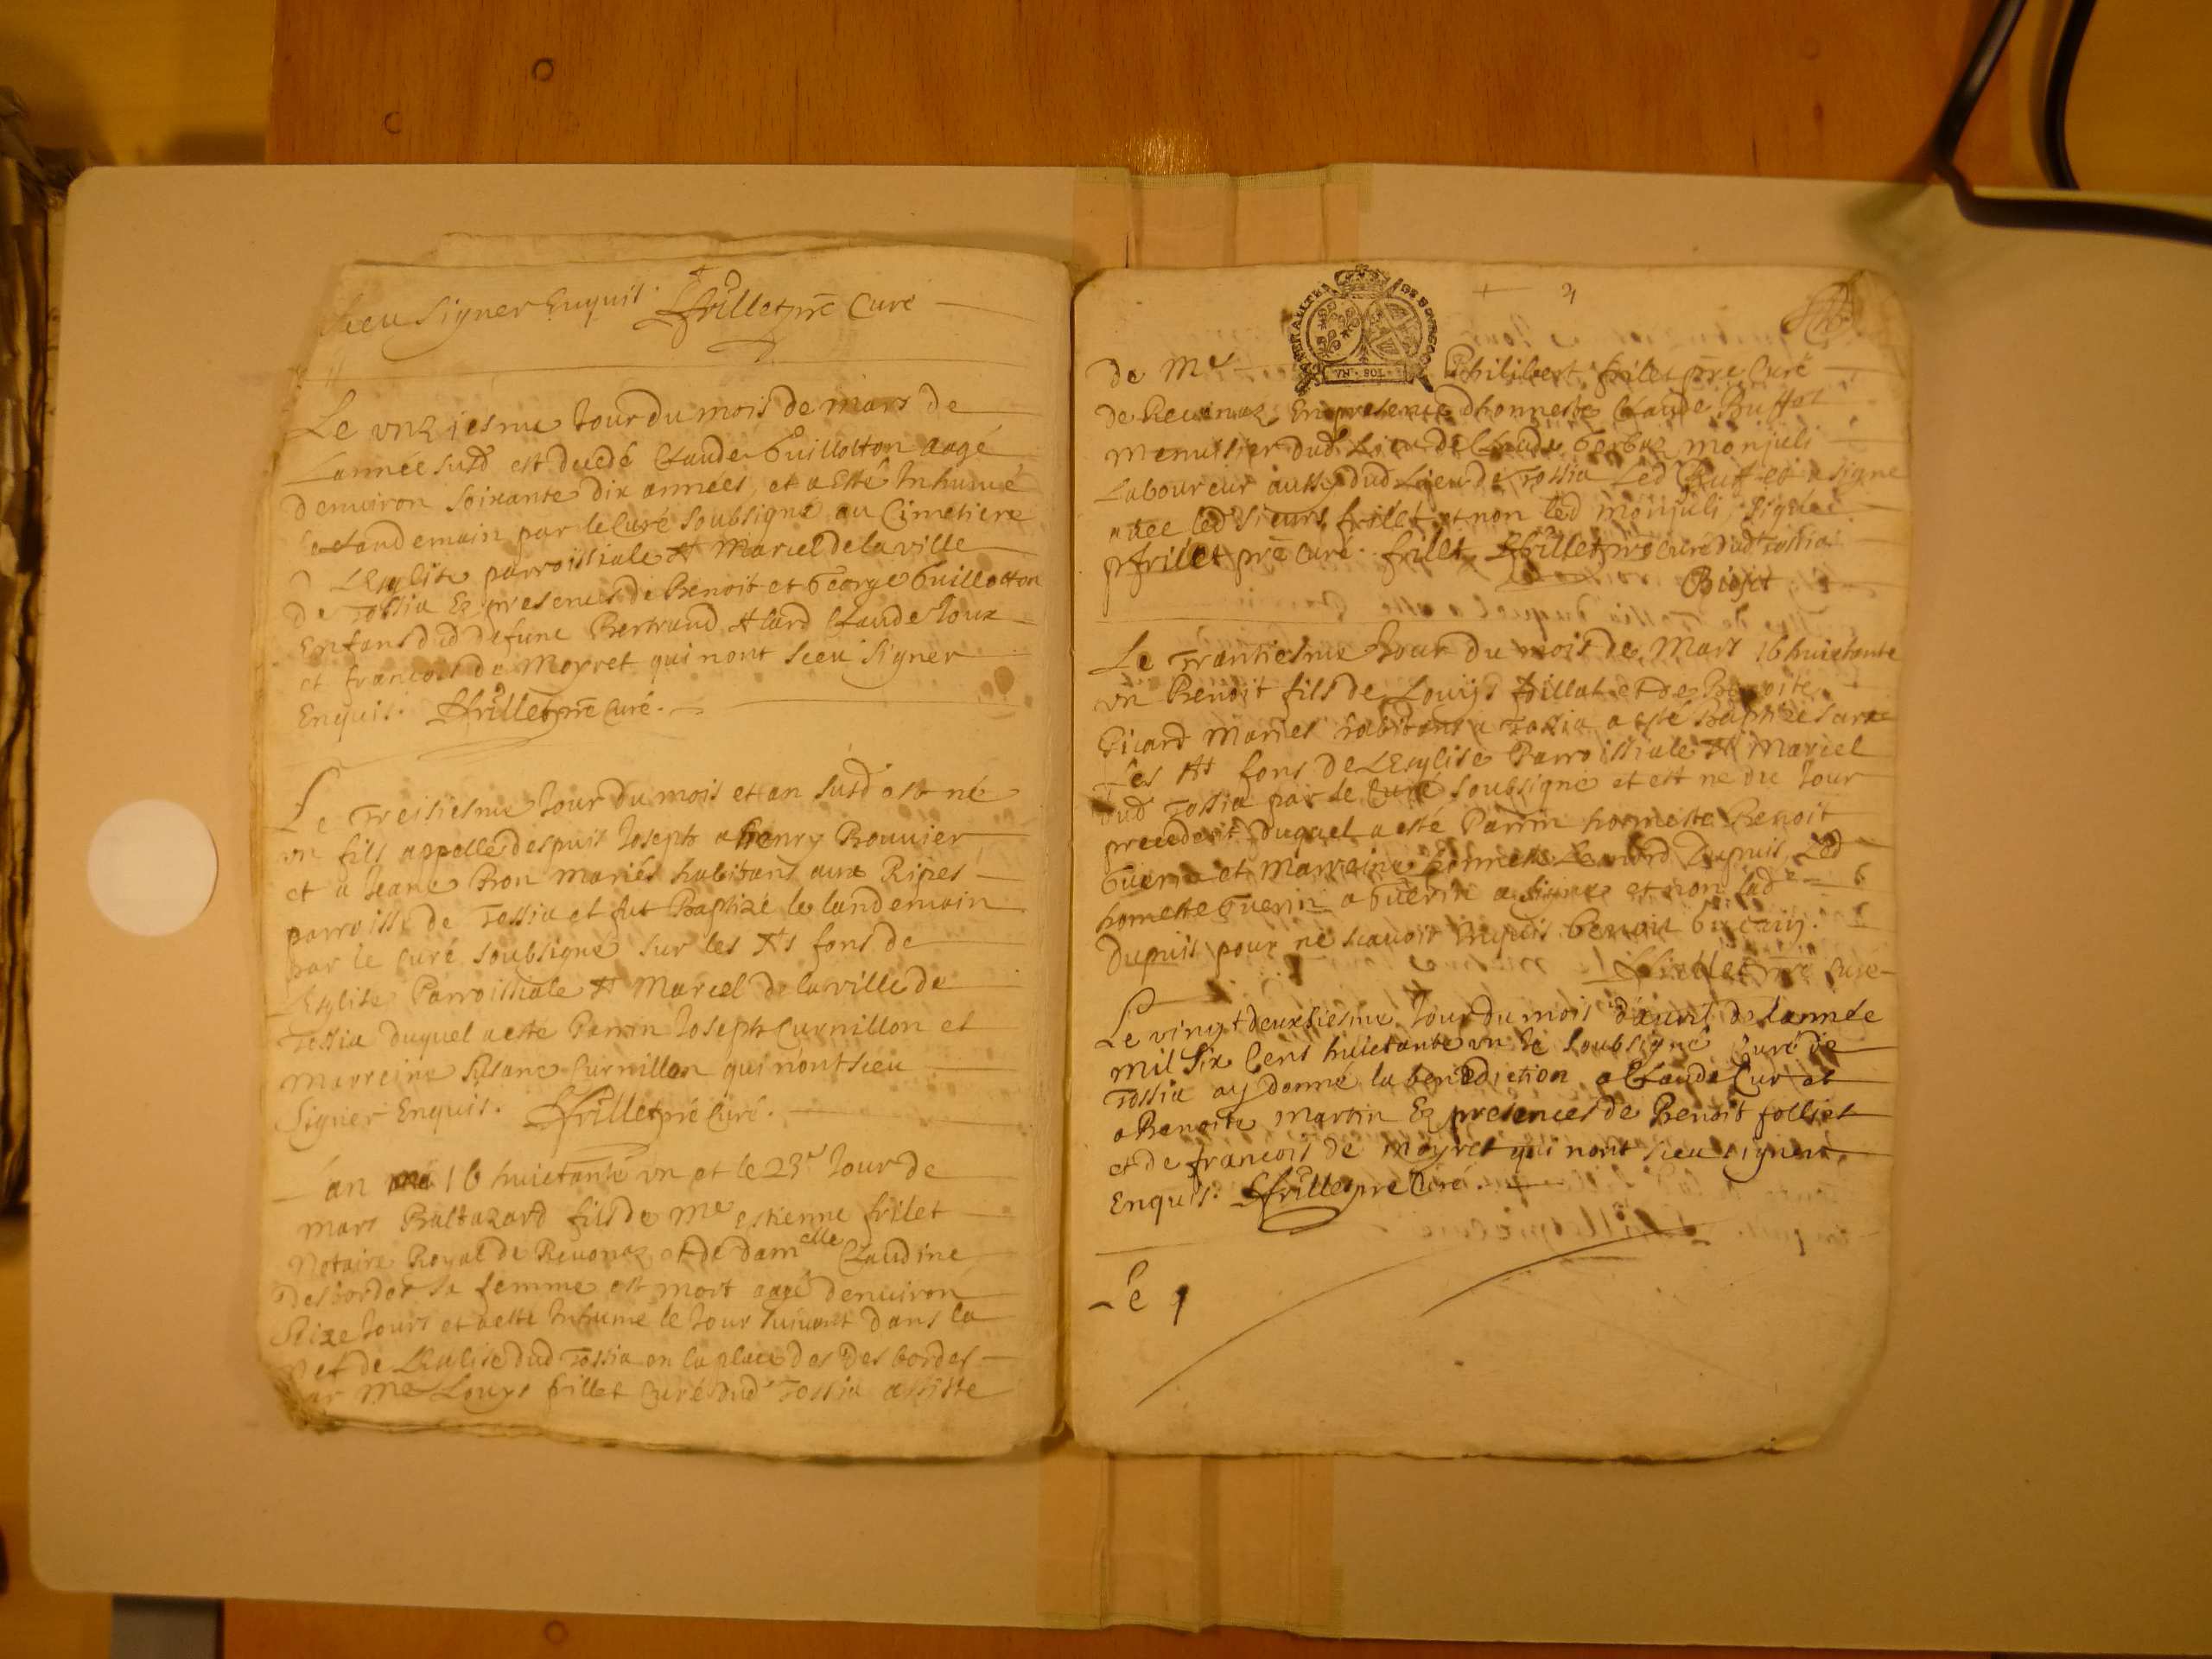 sceu signer Enquis. Lfrillet pre Curé
Le vnziesme Jour du mois de mars de
Lannée susd est decedé Claude Guillotton aagé
denuiron soixante dix années, et a esté Inhumé
le landemain par le Curé soubsigné au Cimetiere
d LEsglise parroissiale St Marcel de la ville
de Tossia Ez presences de Benoit et George Guillotton
Enfans dud defunc Bertrand Alard Claude Joux
et francois de Moyret qui nont sceu signer
Enquis. Lfrillet pre Curé.
Le Treisiesme Jour du mois et an susd est né
vn fils appellé despuis Joseph a henry Bouuier
et a Jeane Bron mariés habitans aux Ripes
parroisse de Tossia et fut Baptizé le landemain
par le Curé soubsigné sur les Sts fons de
LEsglise Parroissiale St Marcel de la ville de
Tossia duquel a esté Parrin Joseph Curnillon et
Marreine Susane Curnillon qui nont sceu
signer Enquis. Lfrillet pre Curé.
Lan 16 huictante vn et le 23e Jour de
mars Baltazard fils de Me estienne frilet
Notaire Royal de Reuonaz et de damelle Claudine
Desbordes sa femme est mort aagé denuiron
Seize Jours et a esté Inhumé le Jour suiuant dans la
nef de LEglise dud Tossia en la place des Desbordes
par Me Louys frillet Curé dud Tossia assisté
4
GENERALITE DE BOURGOG
de Me Philibert frilet pre Curé
de Reuonaz En presence dhonneste Claude Buffet
menuisier dud Lieu de Claude monjuli
Laboureur aussy dud Lieu de Tossia Led Buffet a signe
auec led sieurs frillet et non led monjuli
pfrilet pre Curé. frillet Lfrillet pre Curé dud Tossia
Buffet
Le Trantiesme Jour du mois de Mars 16 huictante
vn Benoit fils de Louys et de Benoite
Picard mariés habitans a Tossia a esté Baptizé sur
les Sts fons de LEsglise Parroissiale St Marcel
dud Tossia par le Curé soubsigné et est né du Jour
precedent duquel a esté Parrin honneste Benoit
Guerin et Marreine honneste Dupuis Led
honneste Guerin a signe et non lad
Dupuis pour ne scauoir Enquis. benoit
Lfrillet pre Curé
Le vingt deuxiesme Jour du mois dauril de lannée
mil six Cens huictante vn Je soubsigné Curé de
Tossia ay donné la benediction a Claude Cur et
a Benoite Martin Ez presences de Benoit folliet
et de francois de Moyret qui nont sceu signer
Enquis. Lfrillet pre Curé.
Le